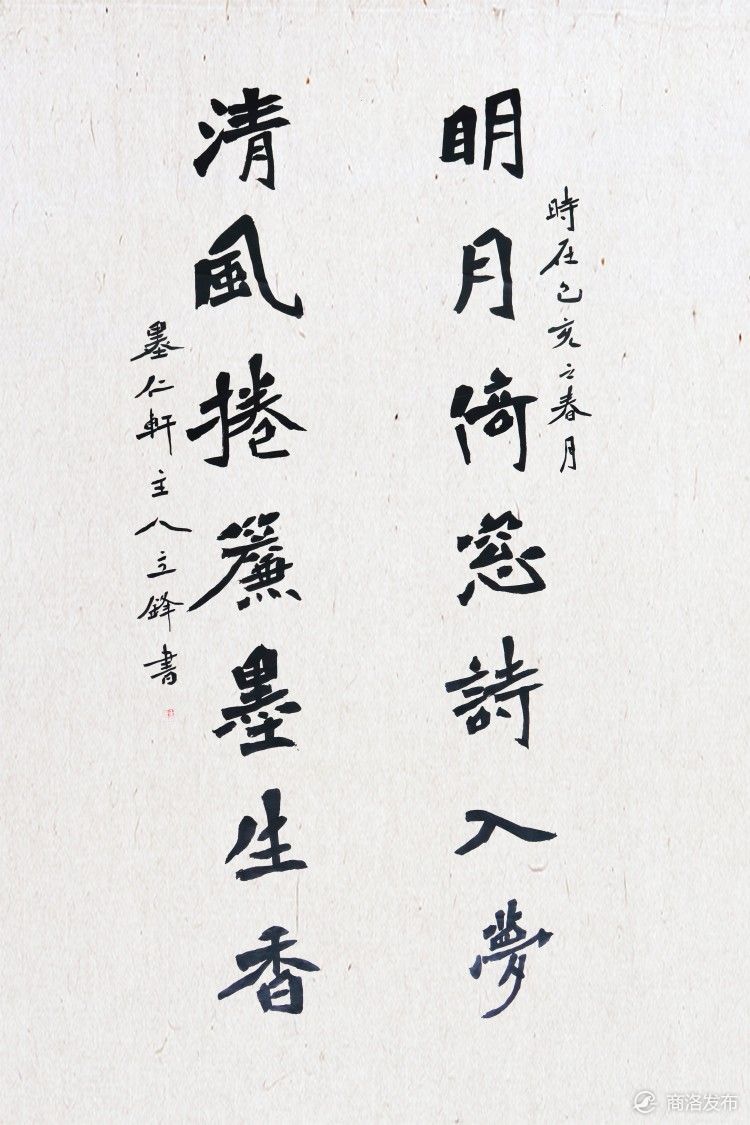 明月倚窓詩入夢
時在己亥之春月
清風捲簾墨生香
墨仁軒主人立鋒書
商洛发布